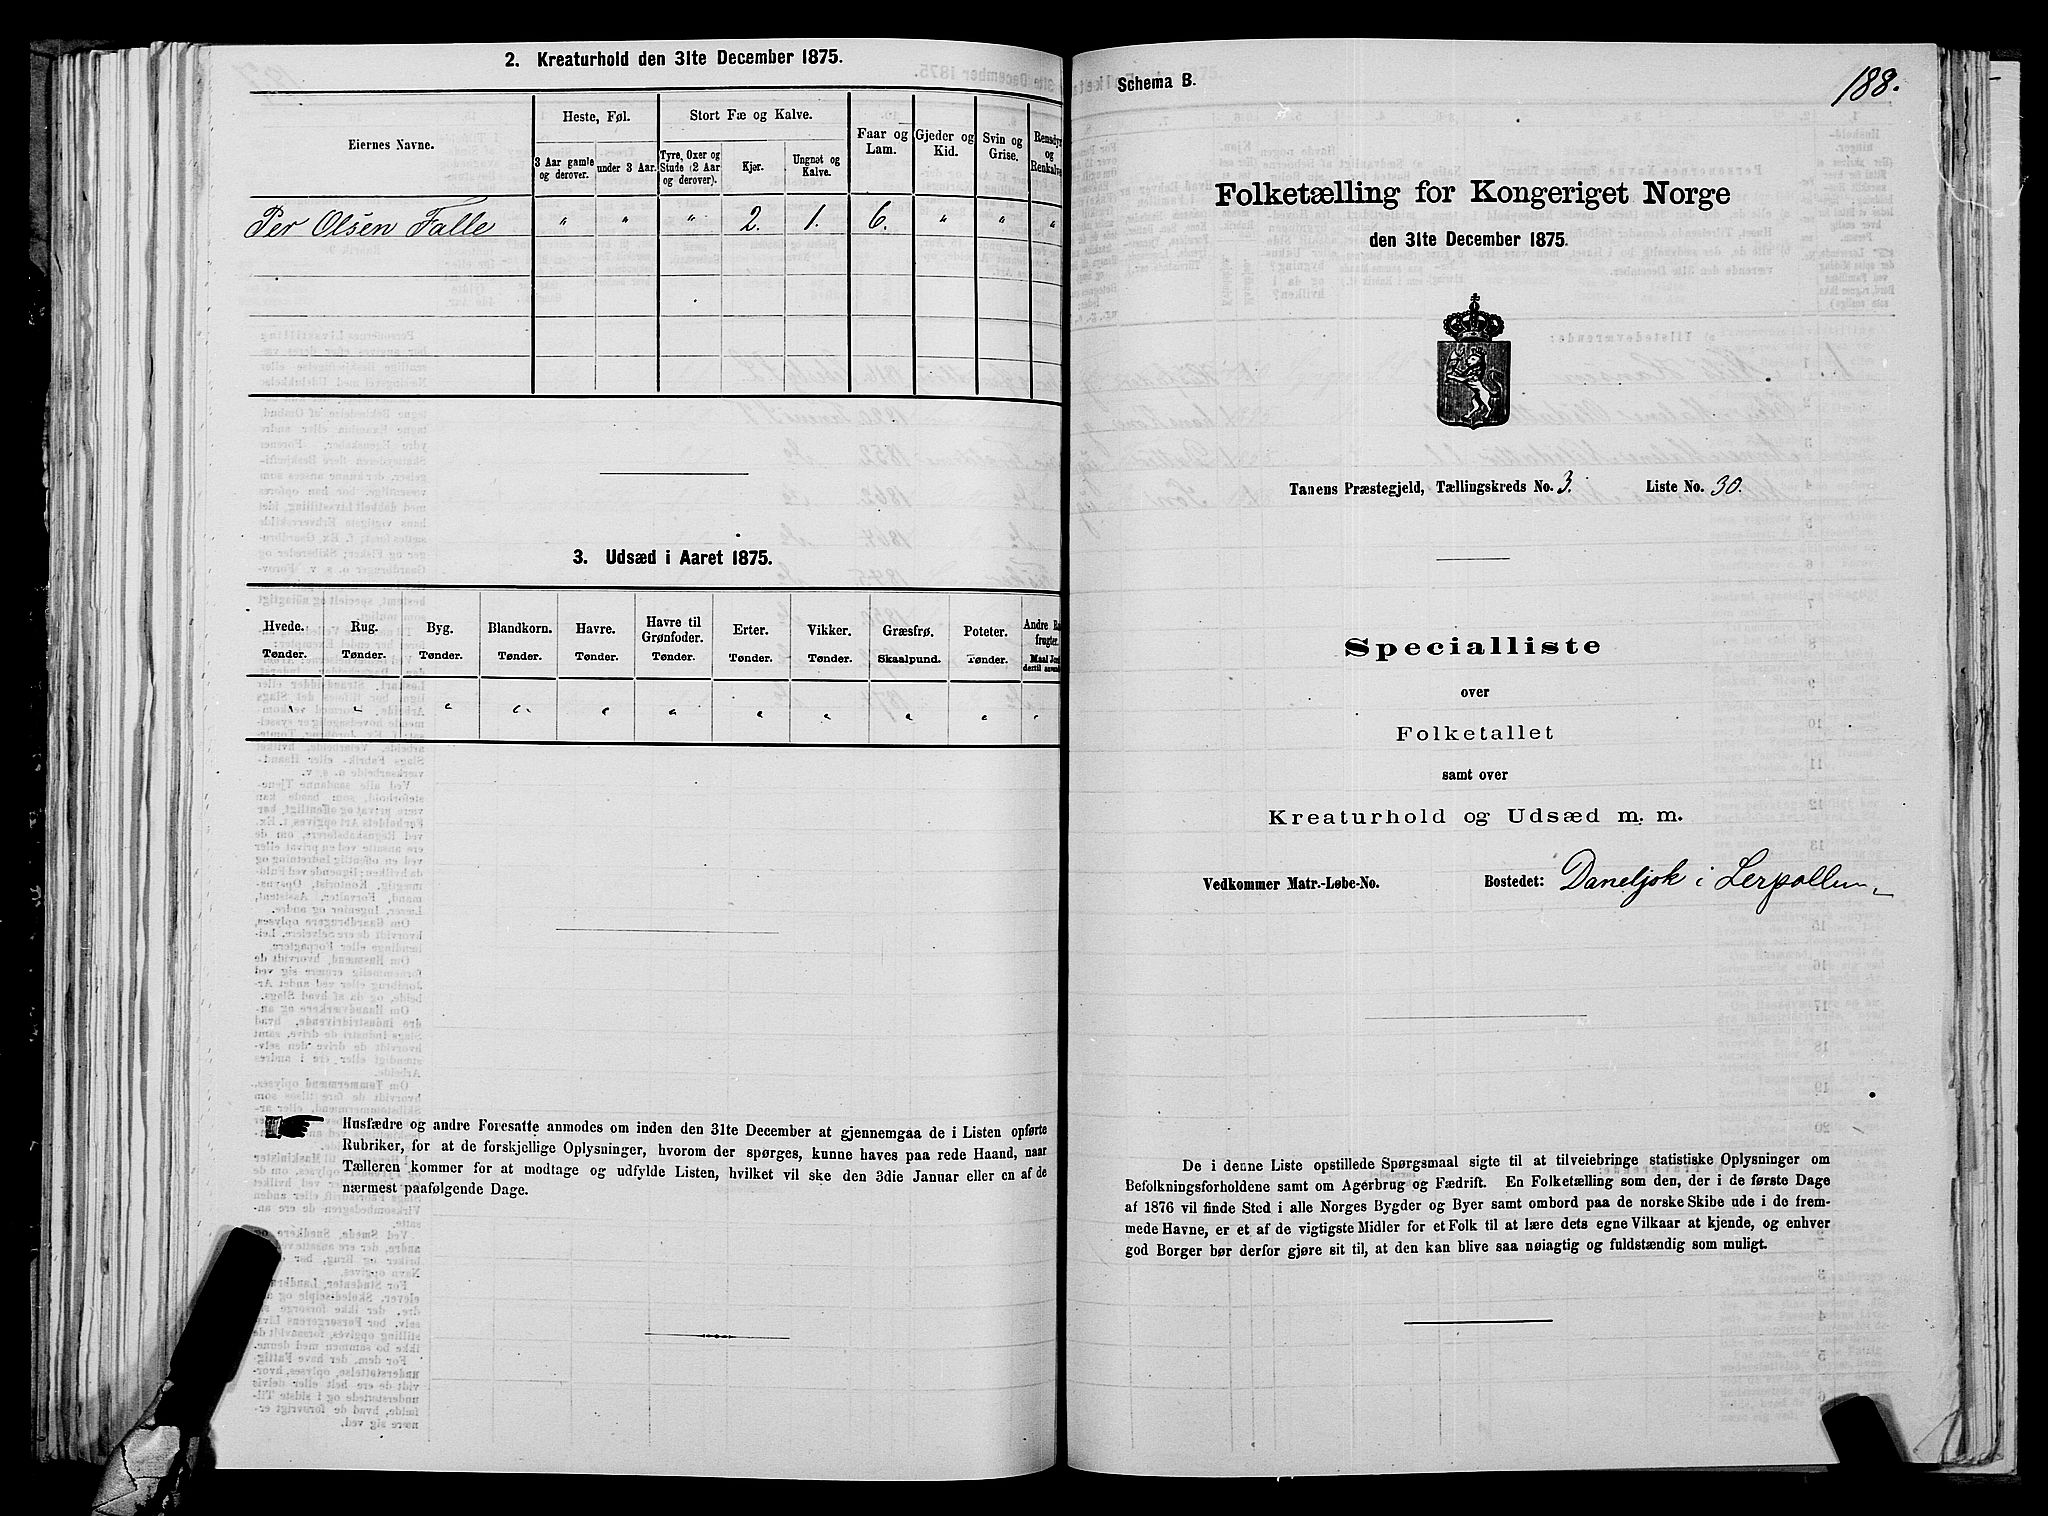 2. Kreaturhold den 31te December 1875.
Eiernes Navne.
Heste, Føl.
Stort Fæ og Kalve.
Faar og Lam.
Gjeder og Kid.
Svin og Grise.
Rensdyr og Renkalve
3 Aar gamle og derover.
under 3 Aar.
Tyre, Oxer og Stude (2 Aar og derover).
Kjør.
Ungnøt og Kalve.
Per Olsen Falle " " " 2. 1. 6. " " "
3. Udsæd i Aaret 1875.
Hvede. Rug. Byg. Blandkorn. Havre. Havre til Grønfoder. Erter. Vikker. Græsfrø. Poteter. Andre
Tønder. Tønder. Tønder. Tønder. Tønder. Tønder. Tønder. Tønder. Skaalpund. Tønder.
" " " " " " " " " " "
Husfædre og andre Foresatte anmodes om inden den 31te December at gjennemgaa de i Listen opførte
Rubriker, for at de forskjellige Oplysninger, hvorom der spørges, kunne haves paa rede Haand, naar
Tælleren kommer for at modtage og udfylde Listen, hvilket vil ske den 3die Januar eller en af de
nærmest paafølgende Dage.
Schema B.
188.
Folketælling for Kongeriget Norge
den 31te December 1875.
Tanens Præstegjeld, Tællingskreds No. 3. Liste No. 30.
Specialliste
over
Folketallet
samt over
Kreaturhold og Udsæd m. m.
Vedkommer Matr.-Løbe-No. Bostedet: Daneljok i Lerpollen
De i denne Liste opstillede Spørgsmaal sigte til at tilveiebringe statistiske Oplysninger om
Befolkningsforholdene samt om Agerbrug og Fædrift. En Folketælling som den, der i de første Dage
af 1876 vil finde Sted i alle Norges Bygder og Byer samt ombord paa de norske Skibe ude i de frem-
mede Havne, er et af de vigtigste Midler for et Folk til at lære dets egne Vilkaar at kjende, og enhver
god Borger bør derfor gjøre sit til, at den kan blive saa nøiagtig og fuldstændig som muligt.